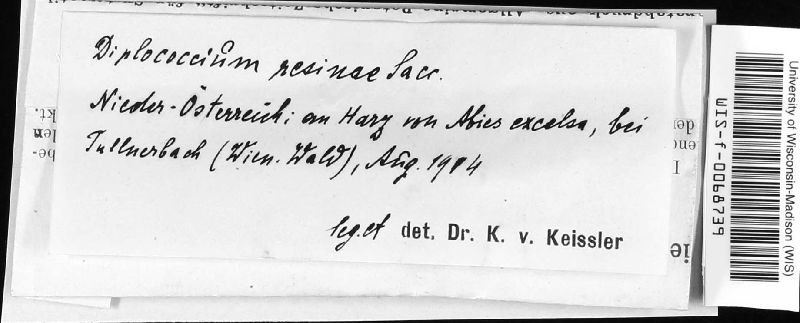 Diplococcium resinae Sacc.
Nieder-Österreich: an Harz von Abies excelsa, bei
Tullnerbach (Wien. Wald), Aug. 1914
leg. et det. Dr. K. v. Keissler
University of Wisconsin-Madison (WIS)
WIS-f-0068739